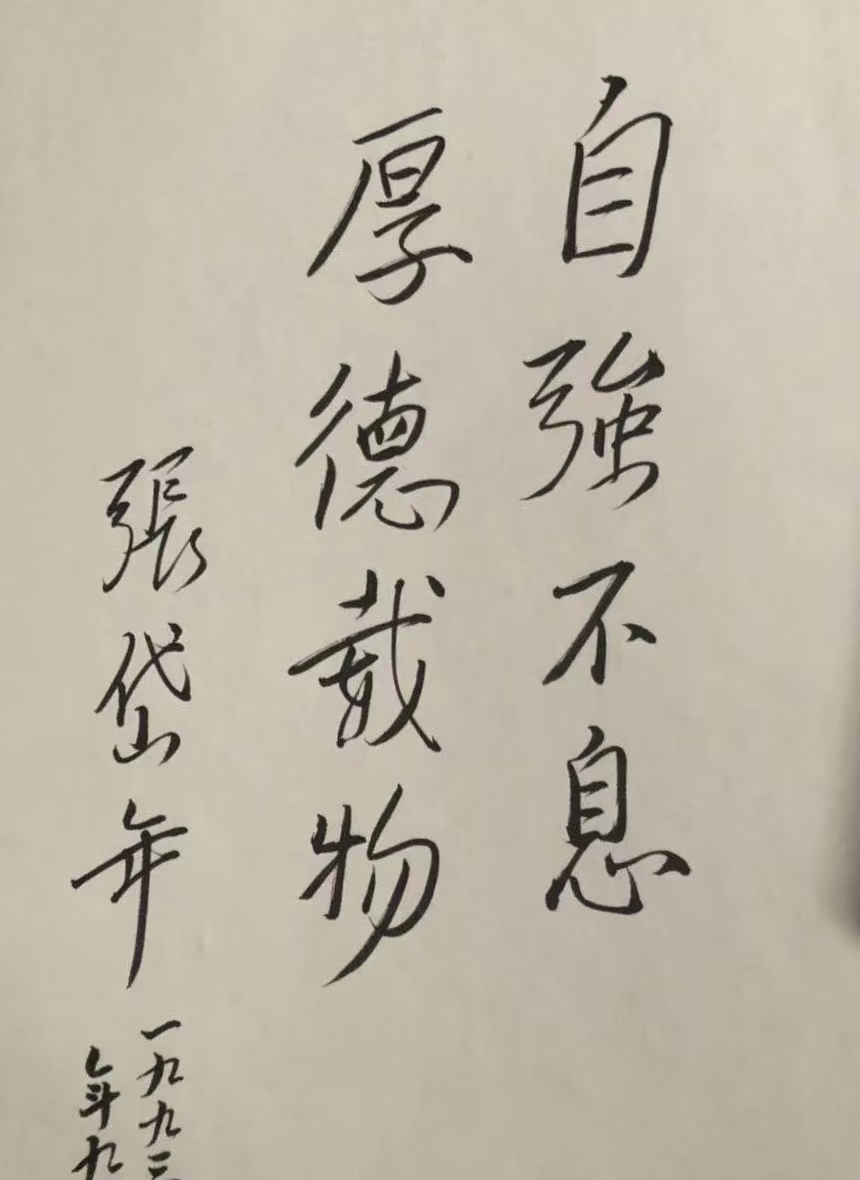 自強不息
厚德載物
張岱年
一九九三
年九